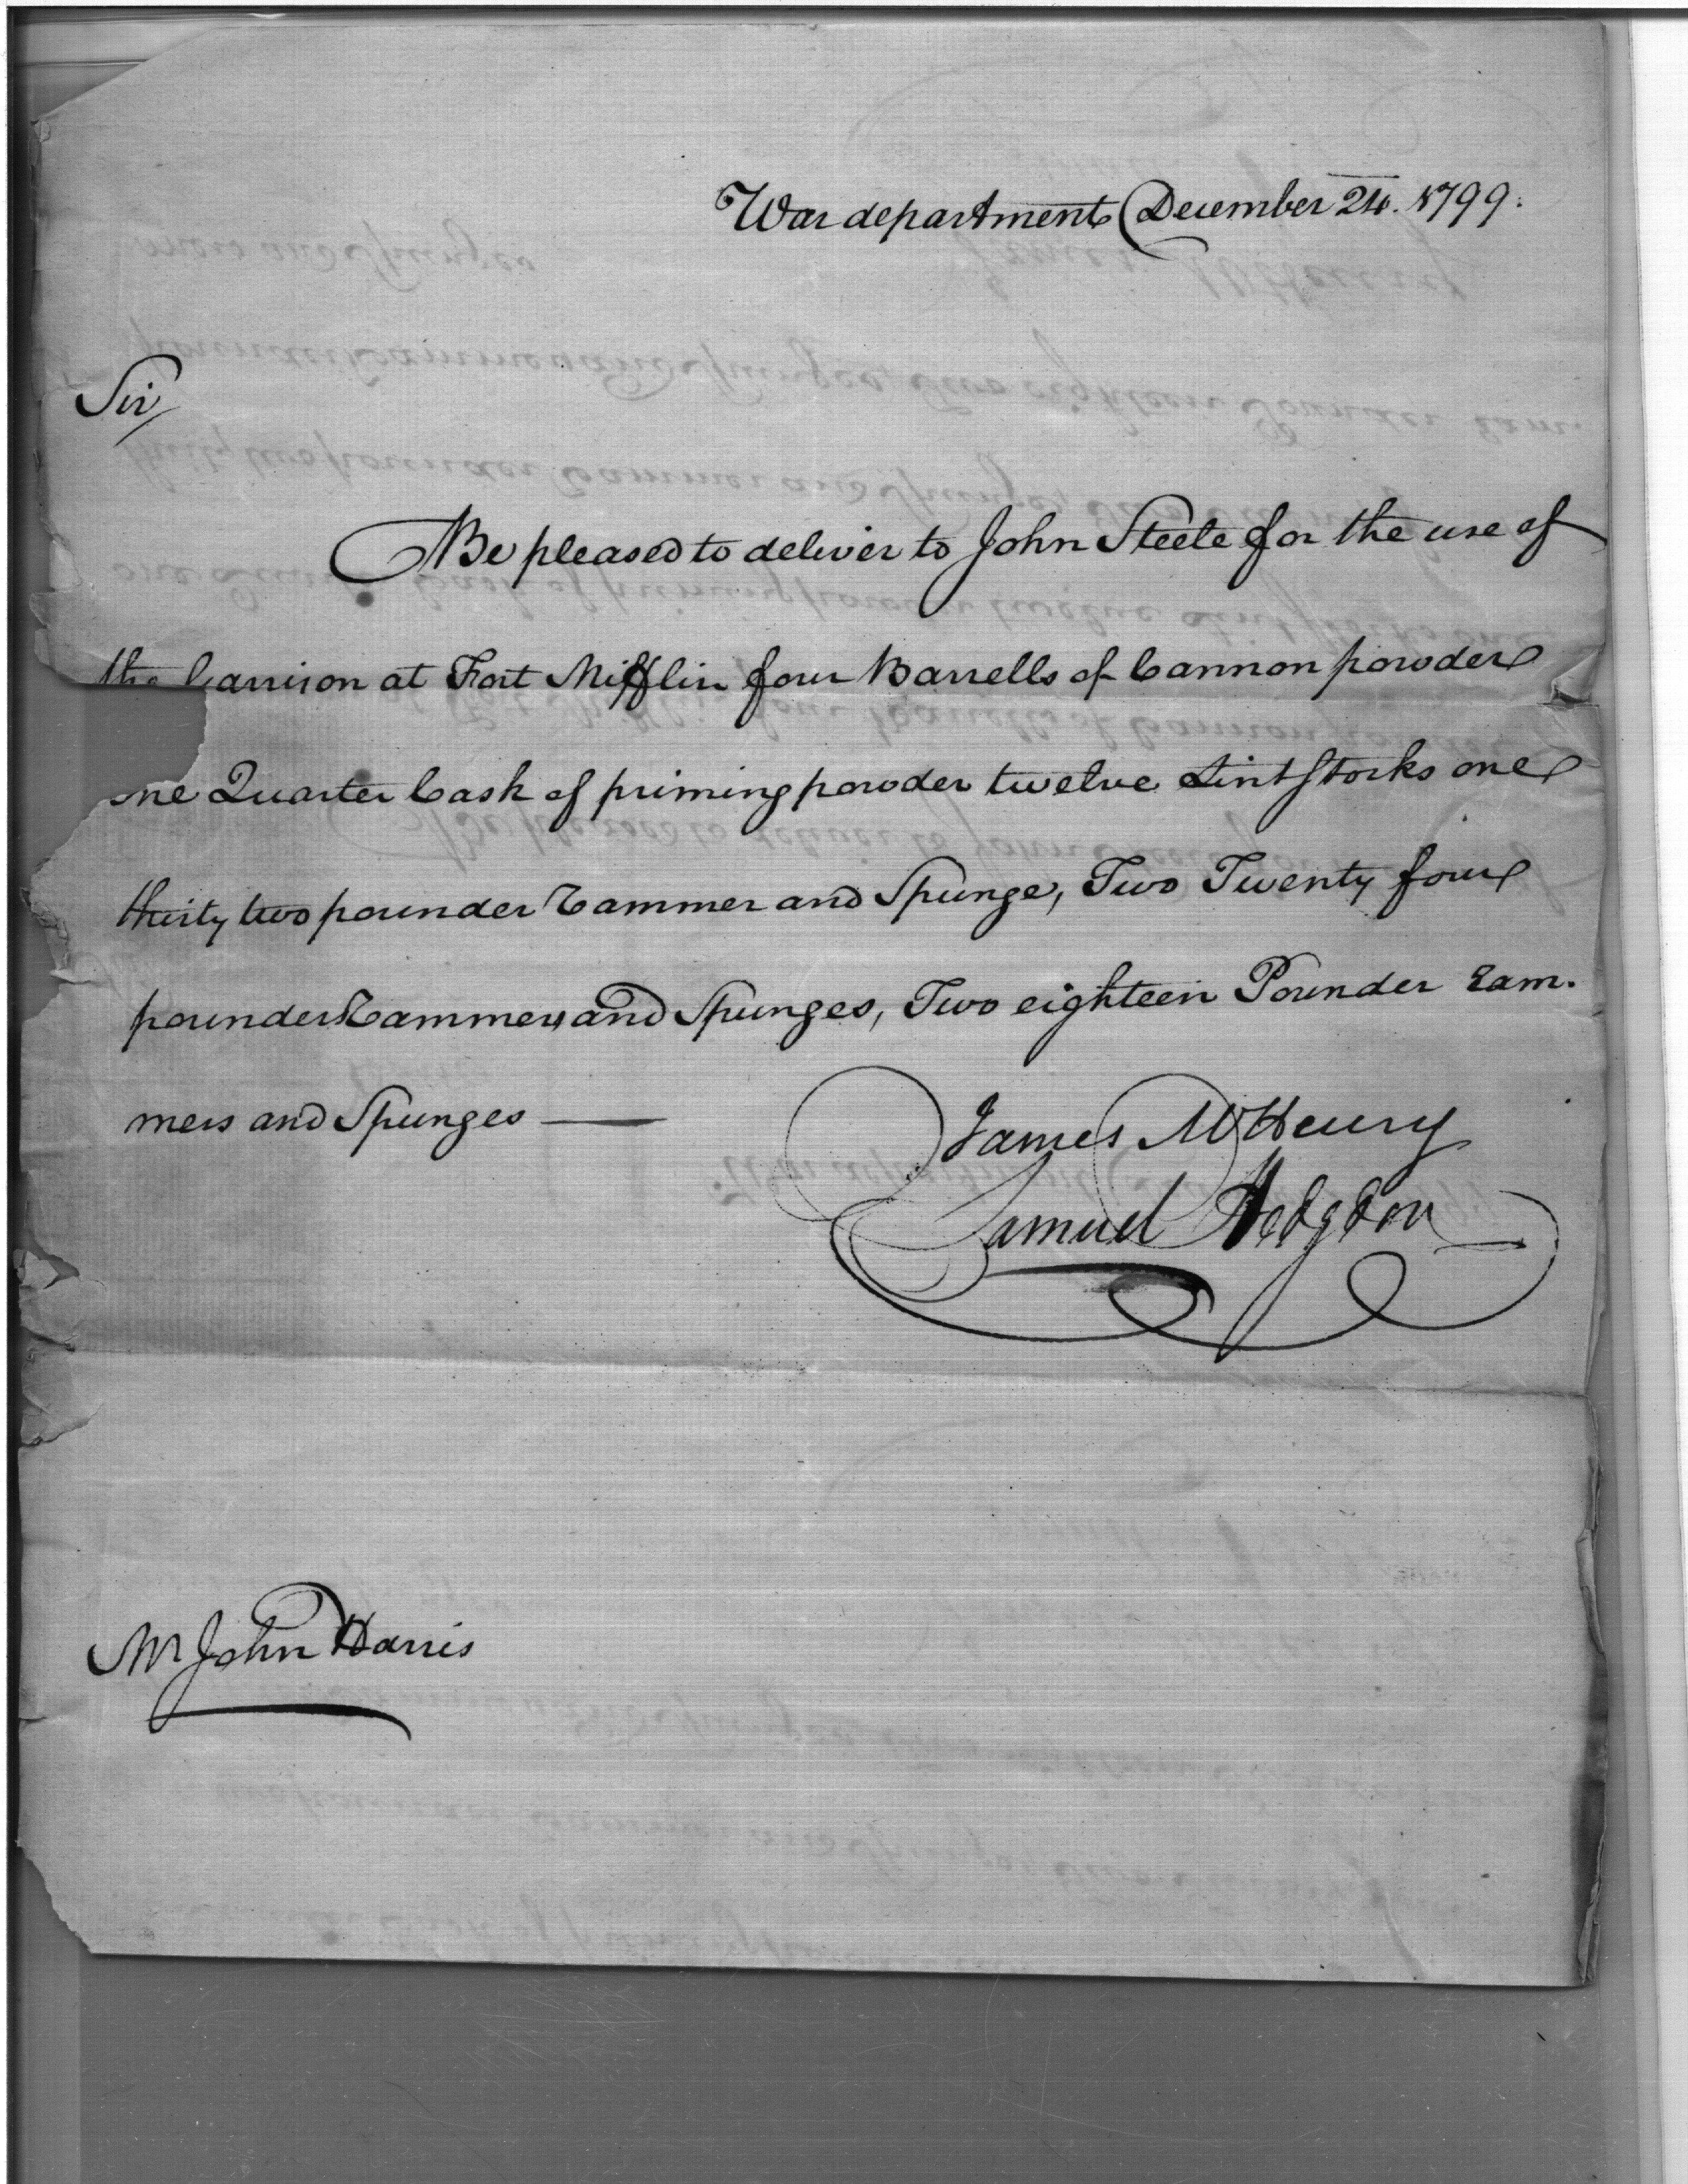 War department December 24. 1799.
Sir
Be pleased to deliver to John Steele for the use of
the Garrison at Fort Mifflin four Barrells of Cannon powder
one Quarter Cask of priming powder twelve Lintstocks one
thirty two pounder Rammer and Spunge, Two Twenty four
pounder Rammers and Spunges, Two eighteen Pounder Ram.
mers and Spunges —
James McHenry
Samuel Hodgdon
Mr John Harris